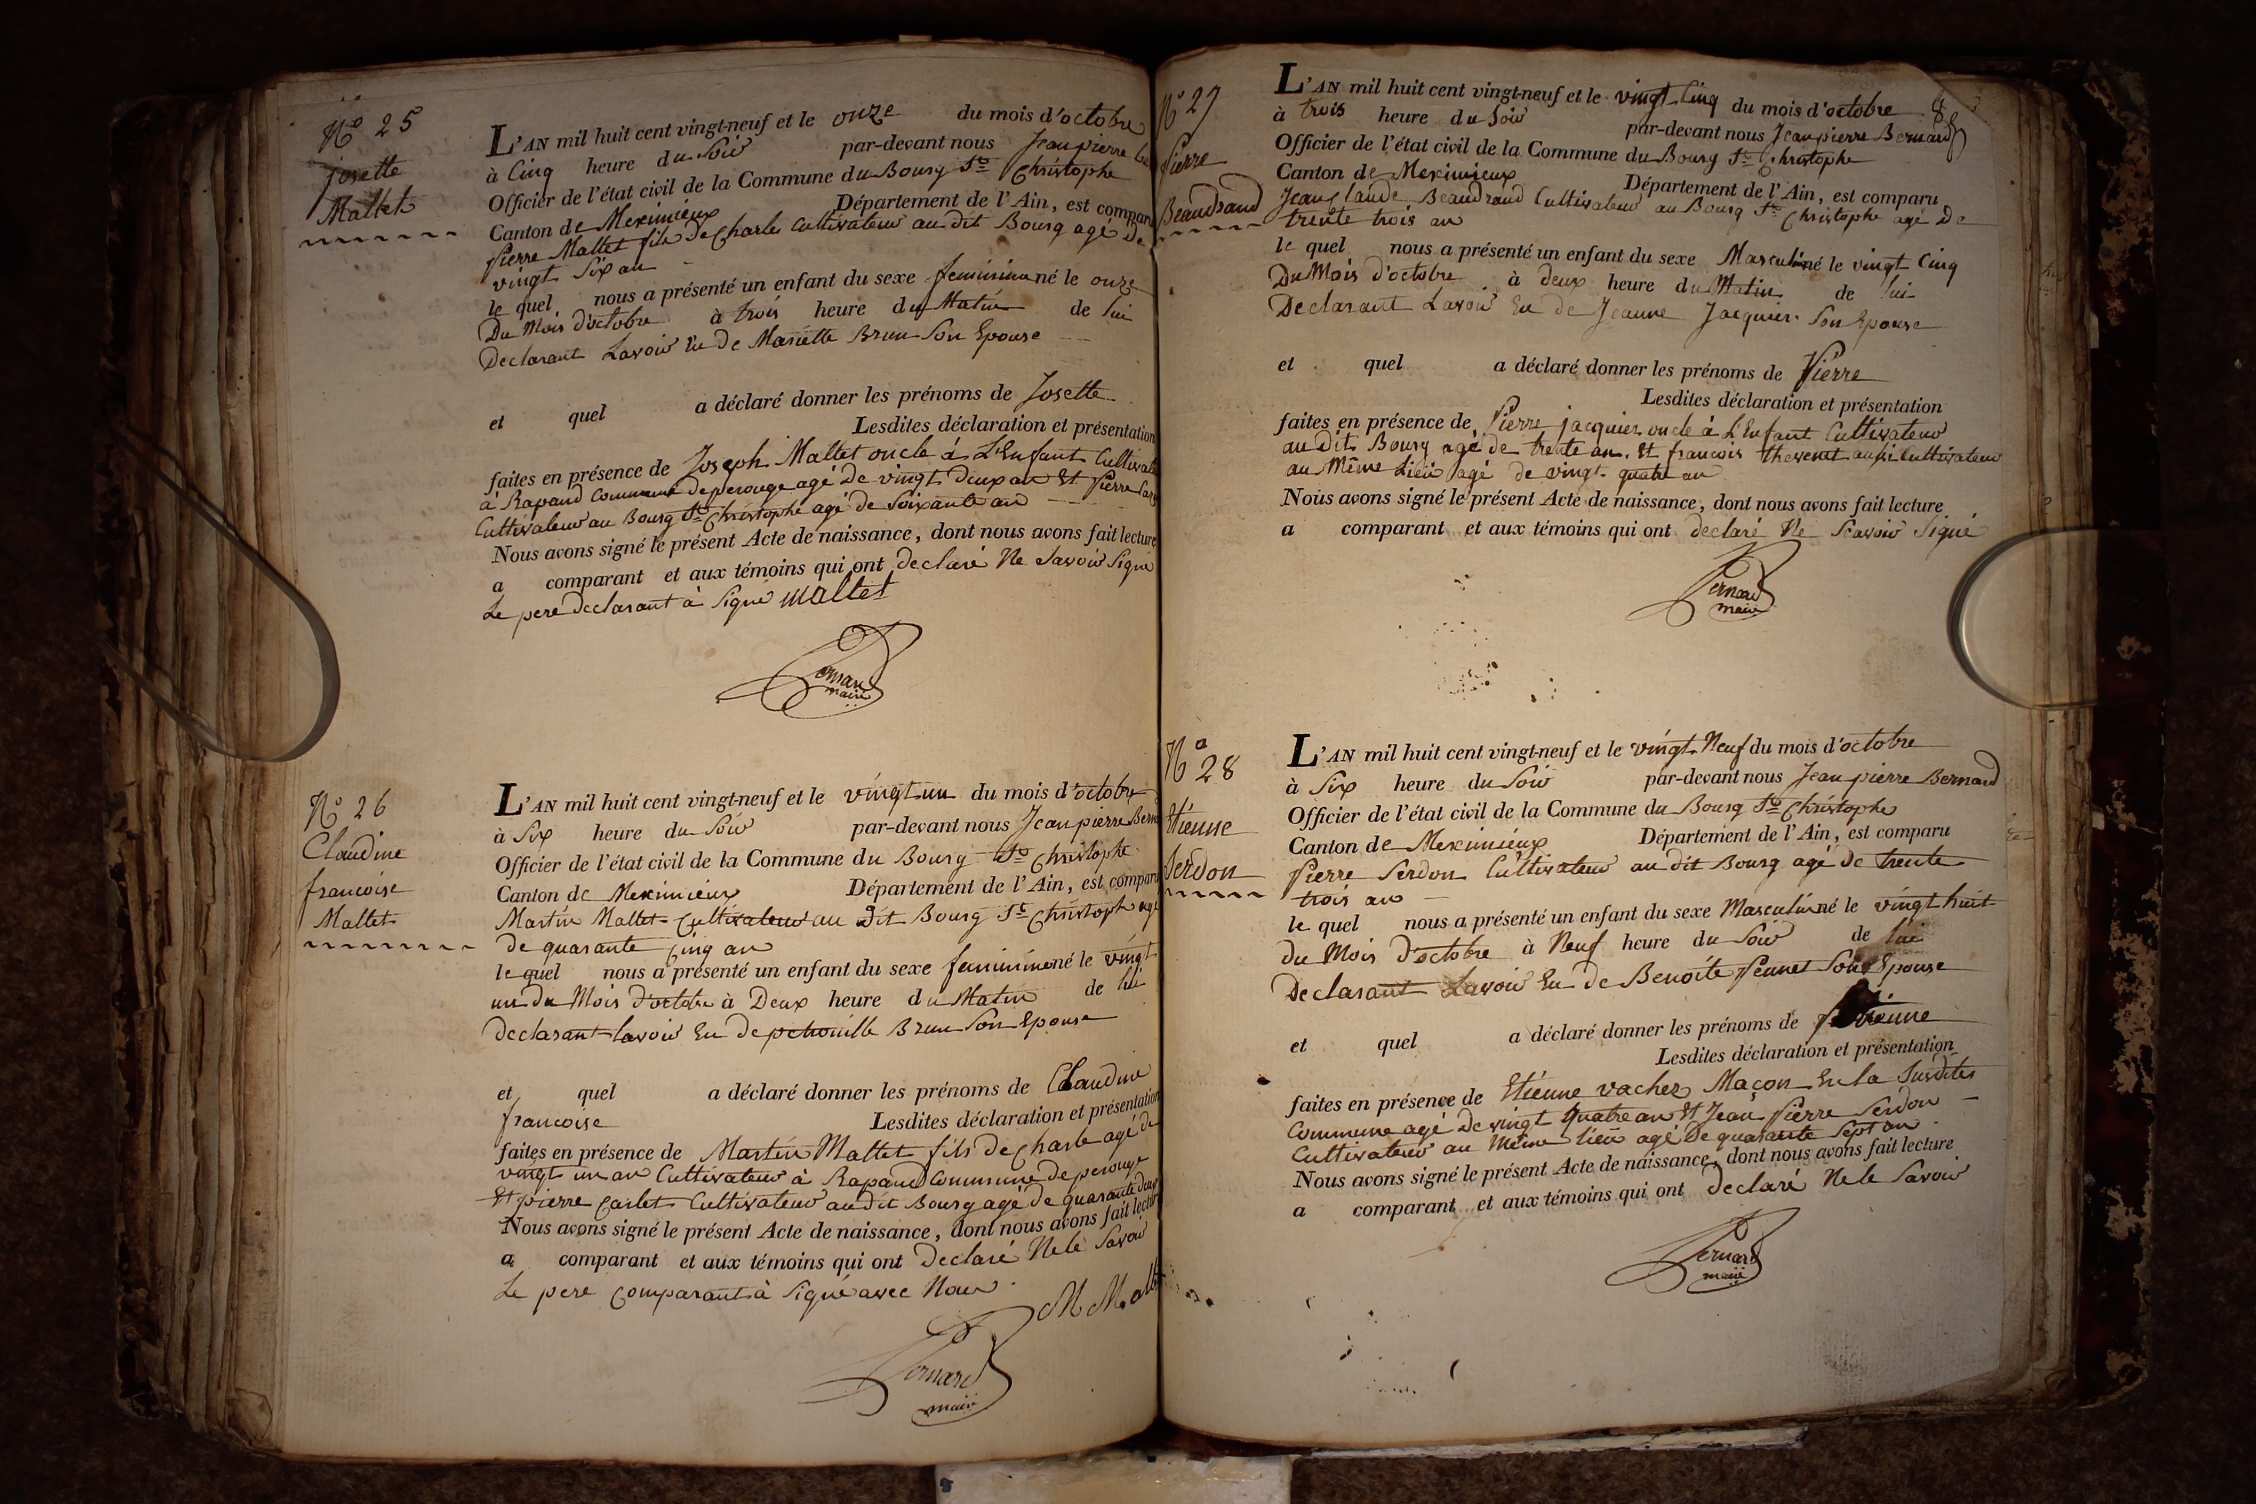 N.º 25
josette
Mallet
L'AN mil huit cent vingt-neuf et le onze du mois d'octobre
à Cinq heure du Soir par-devant nous Jean pierre
Officier de l'état civil de la Commune du Bourg St. Christophe
Canton de Meximieux Département de l'Ain, est comparu
pierre Mallet fils de Charles Cultivateur au dit Bourg agé De
vingt Six an
le quel nous a présenté un enfant du sexe feminin né le onze
Du Mois d'octobre à trois heure du Matin de lui
Declarant Lavoir Eu De Mariette Brun Son Epouse
et quel a déclaré donner les prénoms de Josette
Lesdites déclaration et présentation
faites en présence de Joseph Mallet oncle á L'Enfant Cultivateur
à Rapand Commune de perouge agé De vingt Deux an Et Pierre
Cultivateur au Bourg St. Christophe agé de Soixante an
Nous avons signé le présent Acte de naissance, dont nous avons fait lecture
a comparant et aux témoins qui ont declaré Ne Savoir Signé
Le pere Declarant à Signé Mallet
Bernard
maire
N.º 26
Claudine
francoise
Mallet
L'AN mil huit cent vingt-neuf et le vingt un du mois d'octobre
à Six heure du Soir par-devant nous Jean pierre Bern
Officier de l'état civil de la Commune du Bourg St. Christophe
Canton de Meximieux Département de l'Ain, est comparu
Martin Mallet Cultivateur au Dit Bourg St. Christophe agé
de quarante Cinq an
le quel nous a présenté un enfant du sexe feminin né le vingt
un du Mois d'octobre à Deux heure du Matin de lui
declarant lavoir Eu de petronille Brun Son Epouse
et quel a déclaré donner les prénoms de Claudine
francoise Lesdites déclaration et présentation
faites en présence de Martin Mallet fils De Charle agé de
vingt un an Cultivateur à Rapand Commune de perouge
Et pierre Carlet Cultivateur au dit Bourg agé de quarante deux
Nous avons signé le présent Acte de naissance, dont nous avons fait lecture
a comparant et aux témoins qui ont Declaré Ne le Savoir
Le pere Comparant à Signé avec Nous
M Mallet
Bernard
maire
N.º 27
Pierre
Beaudrand
L'AN mil huit cent vingt-neuf et le vingt Cinq du mois d'octobre
à trois heure du Soir par-devant nous Jean pierre Bernard
Officier de l'état civil de la Commune du Bourg St. Christophe
Canton de Meximieux Département de l'Ain, est comparu
Jean Claude Beaudrand Cultivateur au Bourg St. Christophe agé De
trente trois an
le quel nous a présenté un enfant du sexe Masculin né le vingt Cinq
Du Mois d'octobre à deux heure du Matin de lui
Declarant Lavoir Eu de Jeanne Jacquier Son Epouse
et quel a déclaré donner les prénoms de Pierre
Lesdites déclaration et présentation
faites en présence de Pierre jacquier oncle à L'Enfant Cultivateur
au Dit Bourg agé de trente an. Et francois thevenet aussi Cultivateur
au Même Lieu agé de vingt quatre an
Nous avons signé le présent Acte de naissance, dont nous avons fait lecture
a comparant et aux témoins qui ont declaré Ne Scavoir Signé
Bernard
maire
N.º 28
Etienne
Serdon
L'AN mil huit cent vingt-neuf et le vingt Neuf du mois d'octobre
à Six heure du Soir par-devant nous Jean pierre Bernard
Officier de l'état civil de la Commune du Bourg St. Christophe
Canton de Meximieux Département de l'Ain, est comparu
Pierre Serdon Cultivateur au dit Bourg agé de trente
trois an
le quel nous a présenté un enfant du sexe Masculin né le vingt huit
du Mois d'octobre à Neuf heure du Soir de lui
Declarant Lavoir Eu de Benoite Son Epouse
et quel a déclaré donner les prénoms de Etienne
Lesdites déclaration et présentation
faites en présence de Etienne vacher Maçon En la Susdite
Commune agé De vingt quatre an Et Jean Pierre Serdon
Cultivateur au Même lieu agé De quarante Sept an
Nous avons signé le présent Acte de naissance, dont nous avons fait lecture
a comparant et aux témoins qui ont Declaré Ne le Savoir
Bernard
maire